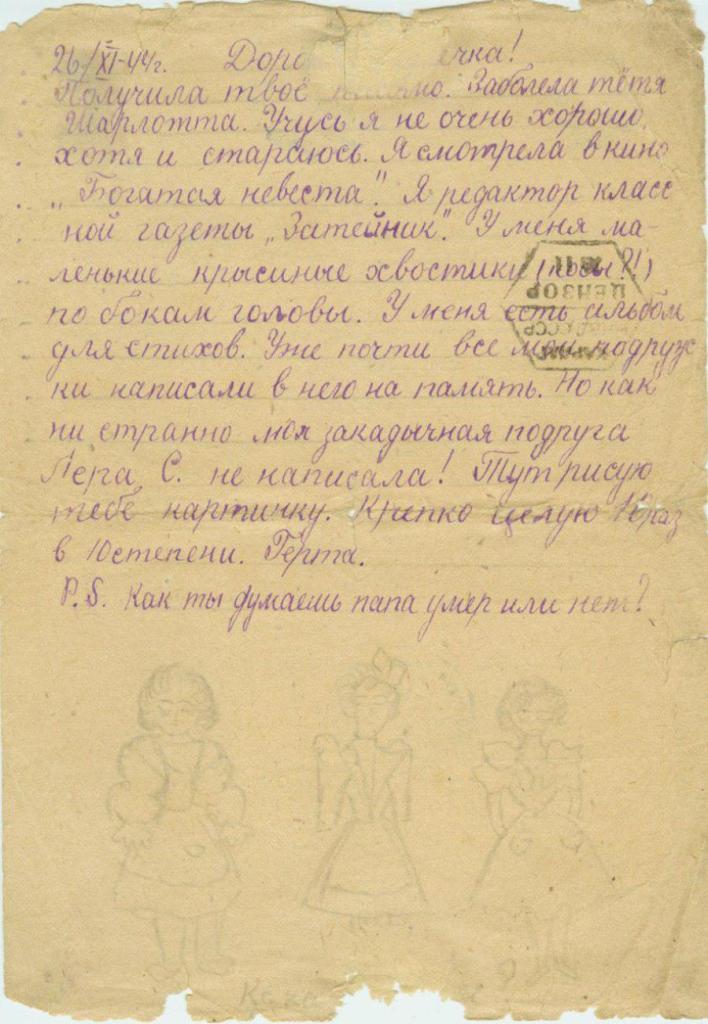 26/XI-44г. Доро ечка!
Получила твоё Заболела тётя
Шарлотта. Учусь я не очень хорошо,
хотя и стараюсь. Я смотрела в кино
„Богатая невеста". Я редактор класс
ной газеты „Затейник". У меня ма-
ленькие крысиные хвостики (косы?!)
по бокам головы. У меня есть альбом
для стихов. Уже почти все мои подруж
ки написали в него на память. Но как
ни странно моя закадычная подруга
Лера С. не написала! Тут рисую
тебе картинку. Крепко целую 10 раз
в 10 степени. Герта.
P.S. Как ты думаешь папа умер или нет?
ЦЕНЗОР